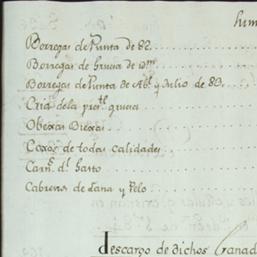 Borregas de Punta de 82
Borregas de Grueia de idm
Borregas de Punta de Abl y Julio de 83
Cria dela prestl grueia
Obexas Viexas
Coxos de todas calidades
Carns dl Gasto
Cabreros de Lana y Pelo
descargo de dichos Ganad